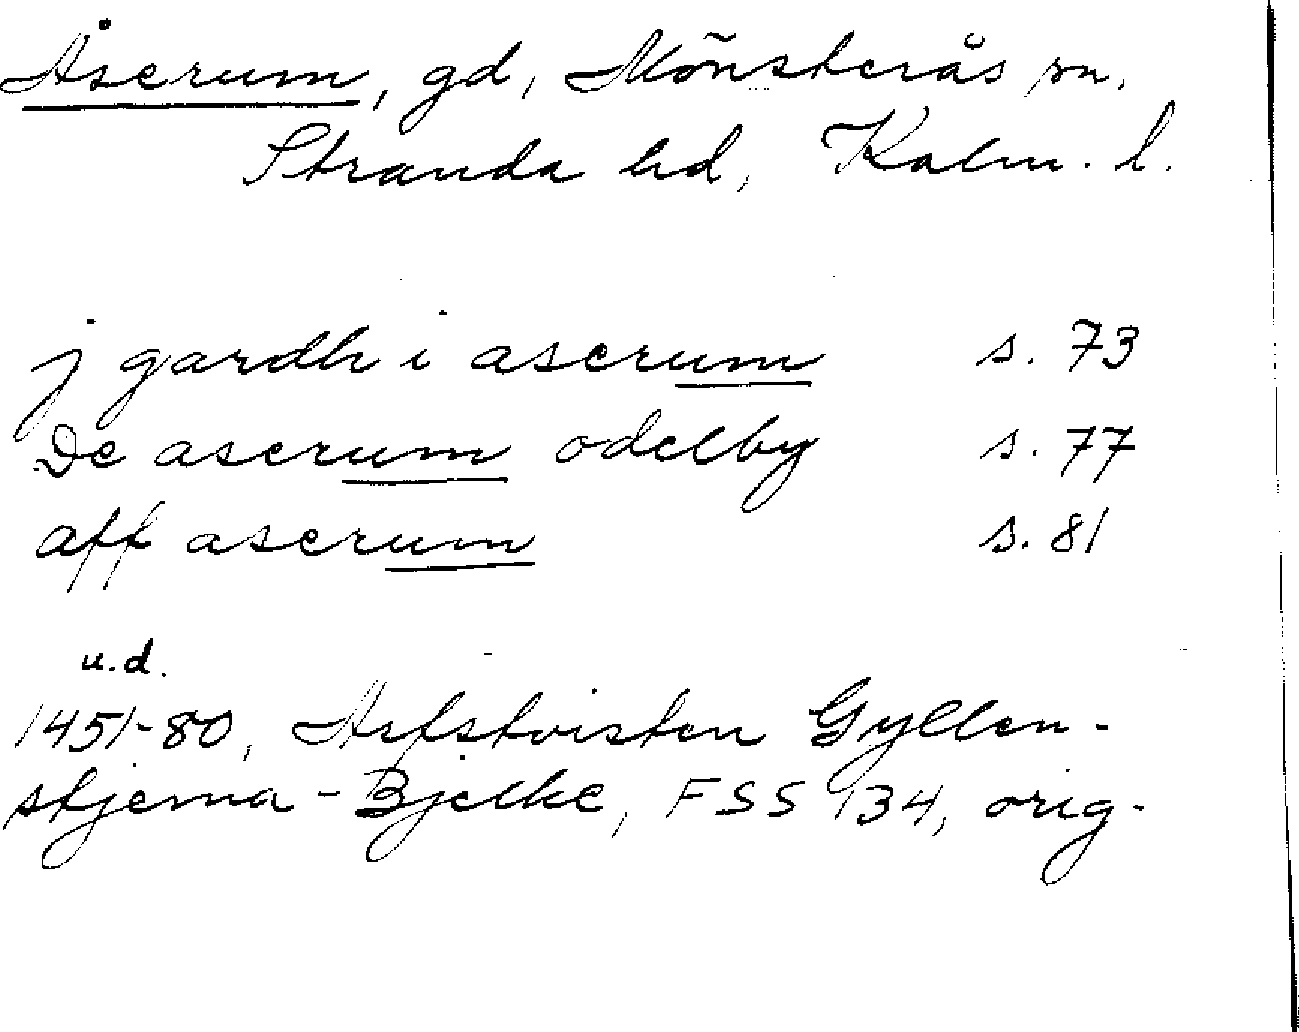 Åserum, gd, Mönsterås sn,
Stranda hd, Kalm. l.
j gardh i aserum s. 73
De aserum odelby s. 77
aff aserum s. 81
u.d.
1451-80, Arfstvisten Gyllen-
stjerna - Bjelke, FSS 134, orig.